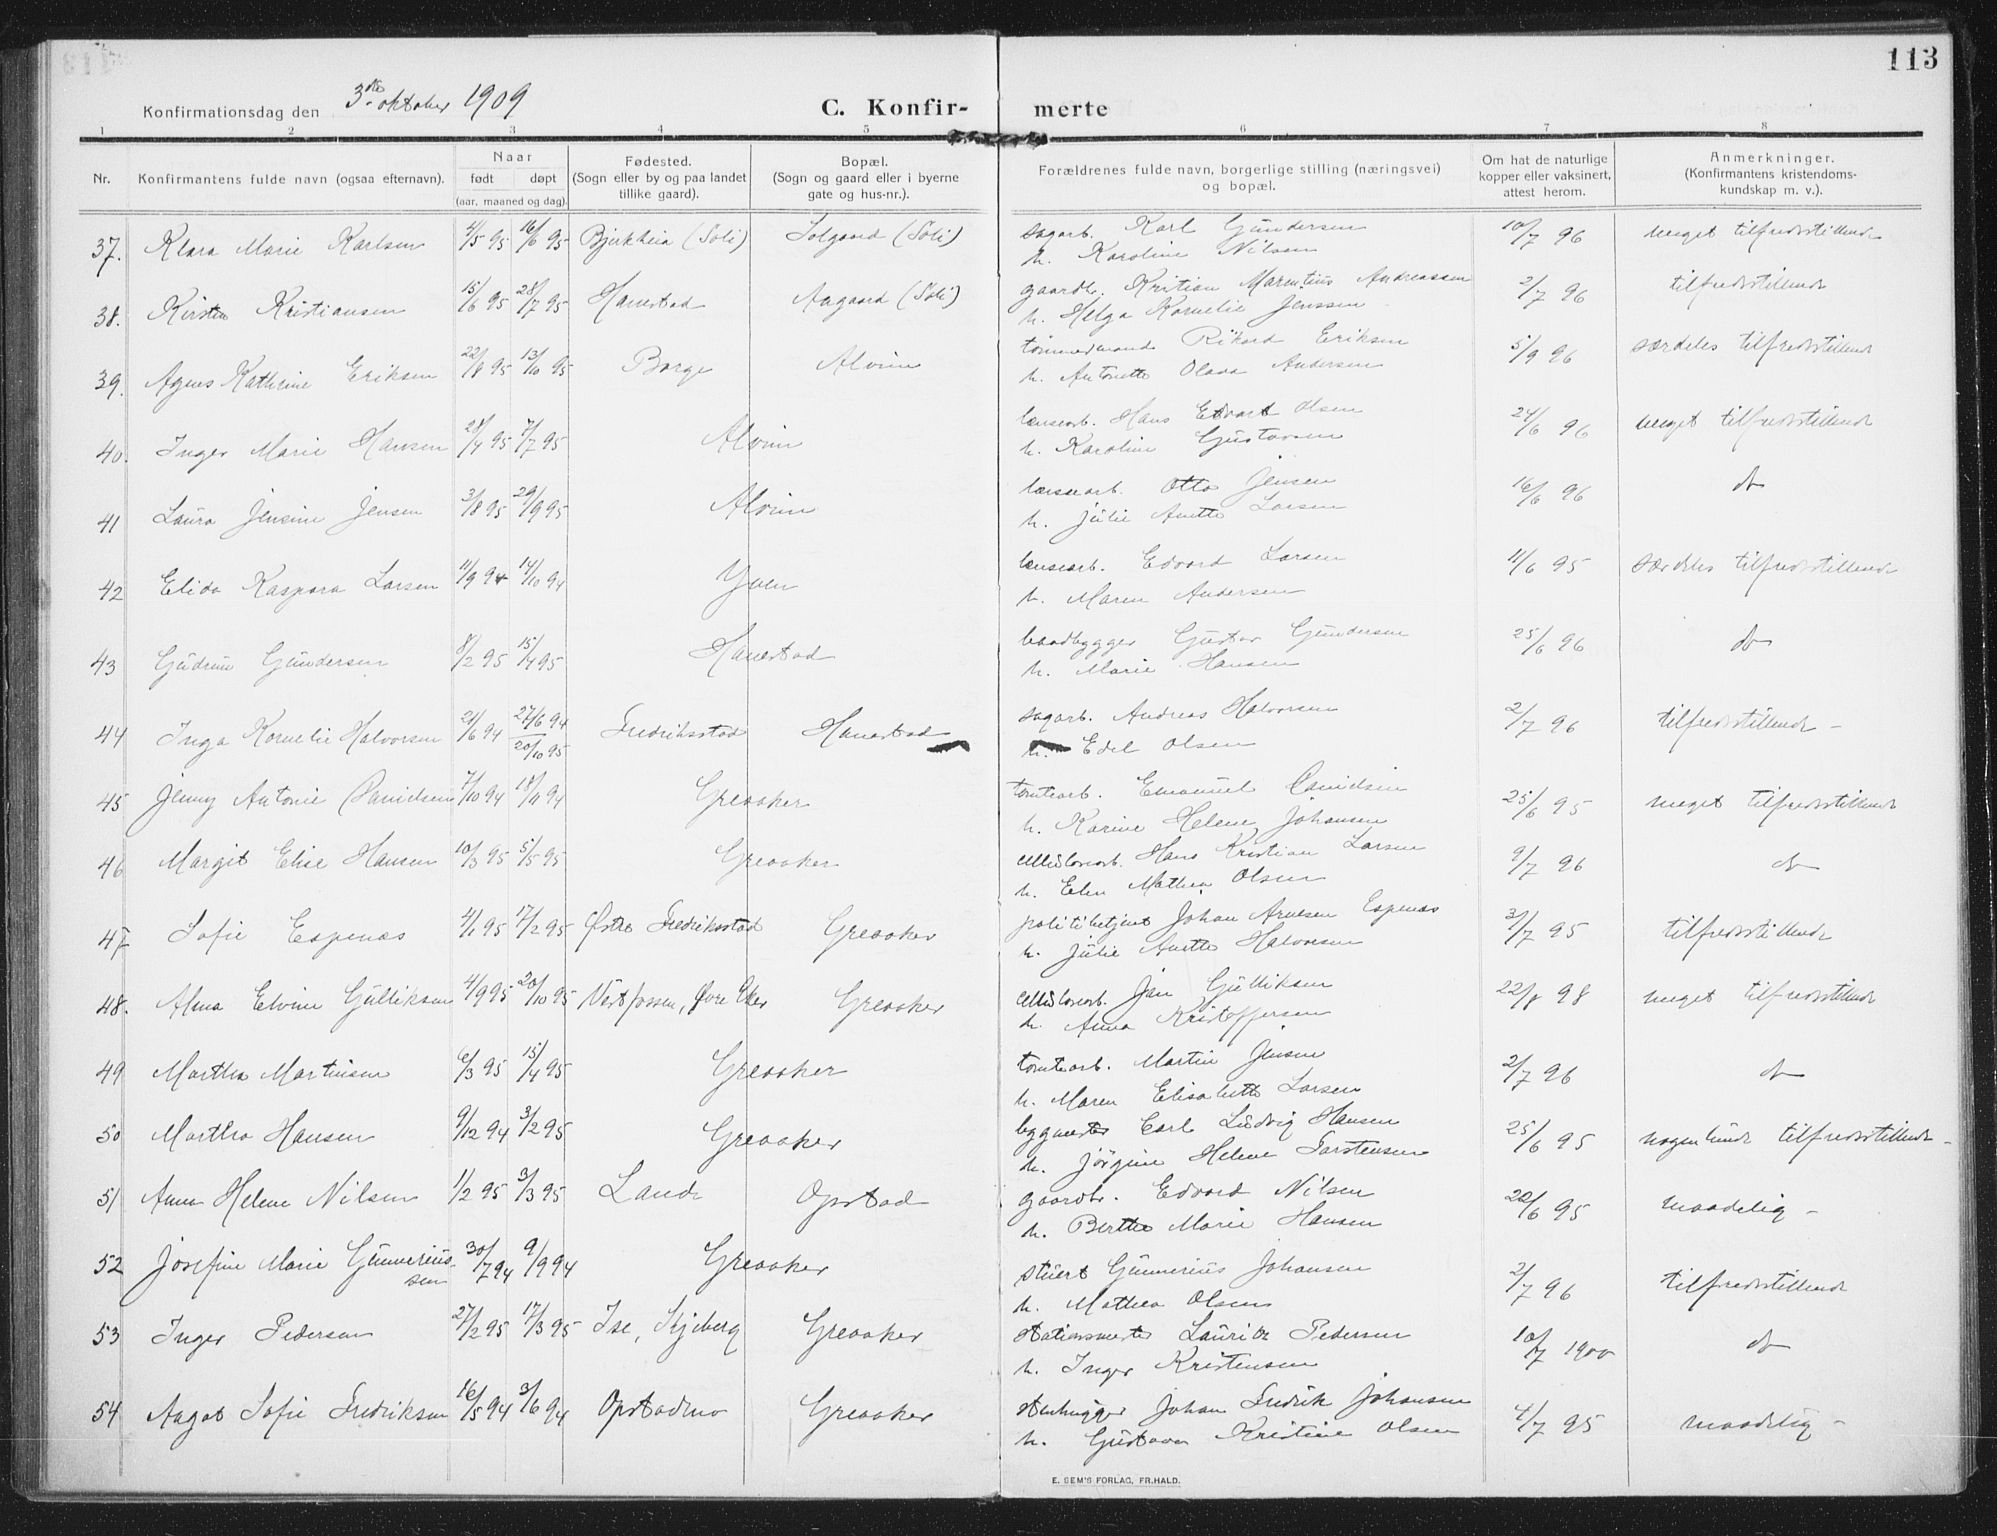 113
Konfirmationsdag den 3die oktober 1909
C. Konfir- merte
1 2 3 4 5 6 7 8
Nr. Konfirmantens fulde navn (ogsaa efternavn). Naar født døpt (aar, maaned og dag). Fødested. (Sogn eller by og paa landet tillike gaard). Bopæl. (Sogn og gaard eller i byerne gate og hus-nr.). Forældrenes fulde navn, borgerlige stilling (næringsvei) og bopæl. Om hat de naturlige kopper eller vaksinert, attest herom. Anmerkninger. (Konfirmantens kristendoms-kundskap m. v.).
37. Klara Marie Karlsen 4/5 95 16/6 95 Bjerkheia (Soli) Solgaard (Soli) sagarb. Karl Gundersen 10/7 96 meget tilfredsstillende
h. Karoline Nilsen
38. Kirsten Kristiansen 15/6 95 28/7 95 Hanestad Aagaard (Soli) gaardbr. Kristian Marentius Andreassen 2/7 96 tilfredsstillende
h. Helga Kornelie Jenssen
39. Agnes Kathrine Eriksen 22/8 95 13/10 95 Borge Alvim tømmermand Rikard Eriksen 5/9 96 særdeles tilfredsstillende
h. Antonette Olava Andersen
40. Inger Marie Hansen 28/4 95 7/7 95 Alvim lensearb. Hans Edvart Olsen 24/6 96 meget tilfredsstillende
h. Karoline Gustavsen
41 Laura Jensine Jensen 3/8 95 29/9 95 Alvim lensearb. Otto Jensen 16/6 96 do
h. Julie Anette Larsen
42 Elida Kaspara Larsen 11/9 94 14/10 94 Yven lensearb. Edvard Larsen 11/6 95 særdeles tilfredsstillende
h. Maren Andersen
43 Gudrun Gundersen 8/2 95 15/4 95 Hanestad baadbygger Gustav Gundersen 25/6 96 do
h. Marie Hansen
44 Inga Kornelie Halvorsen 21/6 94 27/6 94 20/10 95 Fredriksstad Hanestad sagarb. Andreas Halvorsen 2/7 96 tilfredsstillende –
h. Edel Olsen
45 Jenny Antonie Danielsen 7/10 94 18/11 94 Greaaker tomtearb. Emanuel Danielsen 25/6 95 meget tilfredsstillende
h. Karine Helene Johansen
46 Margit Elise Hansen 10/3 95 5/5 95 Greaaker cellulosearb. Hans Kristian Larsen 9/7 96 do
h. Elen Mathea Olsen
47 Sofie Espenæs 4/1 95 17/2 95 Østre Fredriksstad Greaaker politibetjent Johan Arnesen Espenæs 3/7 95 tilfredsstillende
h. Julie Anette Halvorsen
48. Alma Elvine Gulliksen 4/9 95 20/10 95 Vestfossen, Øvre Eker Greaaker cellulosearb. Jan Gulliksen 22/8 98 meget tilfredsstillende
h. Anna Kristoffersen
49 Martha Martinsen 6/3 95 15/4 95 Greaaker tomtearb. Martin Jensen 2/7 96 do
h. Maren Elisabeth Larsen
50 Martha Hansen 9/12 94 3/2 95 Greaaker bygmester Carl Ludvig Hansen 25/6 95 nogenlunde tilfredsstillende –
h. Jørgine Helene Torstensen
51 Anna Helene Nilsen 1/2 95 3/3 95 Lande Opstad gaardbr. Edvard Nilsen 20/6 95 maadelig –
h. Berthe Marie Hansen
52 Josefine Marie Gunnerius- 30/7 94 9/9 94 Greaaker stuert Gunnerius Johansen 2/7 96 tilfredsstillende
sen h. Mathea Olsen
53 Inger Pedersen 27/2 95 17/3 95 Ise, Skjeberg Greaaker stationsmester Lauritz Pedersen 10/7 1900 do
h. Inger Kristensen
54 Aagot Sofie Fredriksen 16/5 94 3/6 94 Opstadmo Greaaker stenhugger Johan Fredrik Johansen 4/7 95 maadelig –
h. Gustava Kristine Olsen
E. SEM'S FORLAG, FR.HALD.